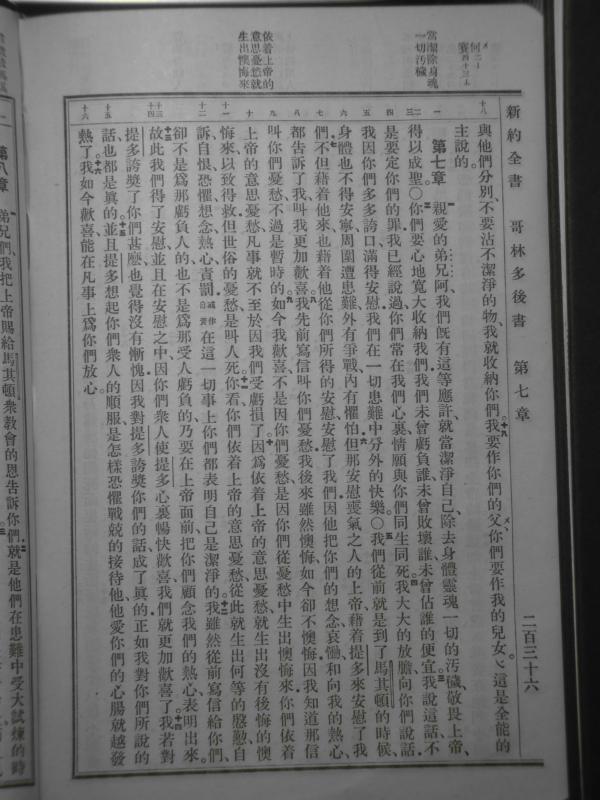 新約全書　哥林多後書　第七章　二百三十六
當潔除身魂
一切汚穢
依着上帝的
意思憂愁就
生出懊悔來
十八
與他們分別、不要沾不潔淨的物、我就收納你們、十九我要作你們的父、你們要作我的兒女、這是全能的
主說的。
第七章　一親愛的弟兄阿、我們旣有這等應許、就當潔淨自己、除去身體靈魂一切的汚穢、敬畏上帝、
得以成聖○二你們要心地寬大收納我們、我們未曾虧負誰、未曾敗壞誰、未曾佔誰的便宜、三我說這話、不
是要定你們的罪、我已經說過、你們常在我們心裏、情願與你們同生同死、四我大大的放膽、向你們說話、
我因你們多多誇口、滿得安慰、我們在一切患難中、分外的快樂○五我們從前就是到了馬其頓的時候、
身體也不得安寧、周圍遭患難、外有爭戰、內有懼怕、六但那安慰喪氣之人的上帝、藉着提多來安慰了我
們、七不但藉着他來、也藉着他從你們所得的安慰、安慰了我們、因他把你們的想念、哀慟、和向我的熱心、
都告訴了我、叫我更加歡喜、八我先前寫信叫你們憂愁、我後來雖然懊悔、如今卻不懊悔、因我知道那信
叫你們憂愁、不過是暫時的、九如今我歡喜、不是因你們憂愁、是因你們從憂愁中生出懊悔來、你們依着
上帝的意思憂愁、凡事就不至於因我們受虧損了、十因爲依着上帝的意思憂愁、就生出沒有後悔的懊
悔來、以致得救、但世俗的憂愁、是叫人死、十一你看你們依着上帝的意思憂愁、從此就生出何等的慇懃、自
訴、自恨、恐懼、想念、熱心、責罰、在這一切事上、你們都表明自己是潔淨的、十二我雖然從前寫信給你們、
卻不是爲那虧負人的、也不是爲那受人虧負的、乃要在上帝面前、把你們顧念我們的熱心、表明出來。
十三故此我們得了安慰、並且在安慰之中、因你們衆人使提多心裏暢快歡喜、我們就更加歡喜了、十四我若對
提多誇獎了你們甚麽、也覺得沒有慚愧、因我對提多誇獎你們的話、成了眞的、正如我對你們所說的
話、也都是眞的、十五並且提多想起你們衆人的順服、是怎樣恐懼戰兢的接待他、他愛你們的心腸就越發
熱了、十六我如今歡喜、能在凡事上爲你們放心。
第八章　一弟兄們、我把上帝賜給馬其頓衆教會的恩告訴你們、二就是他們在患難中受大試煉的時